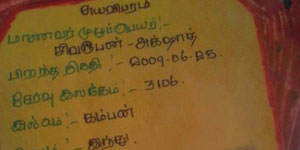 சுயவிபரம்
மாணவர் முழுப்பெயர்:-
சிவரூபன் - அக்ஷாத்
பிறந்த திகதி :- 2009.06.25.
தேர்வு இலக்கம்:- 3106.
இல்லம்:- கம்பன்
:- இந்து